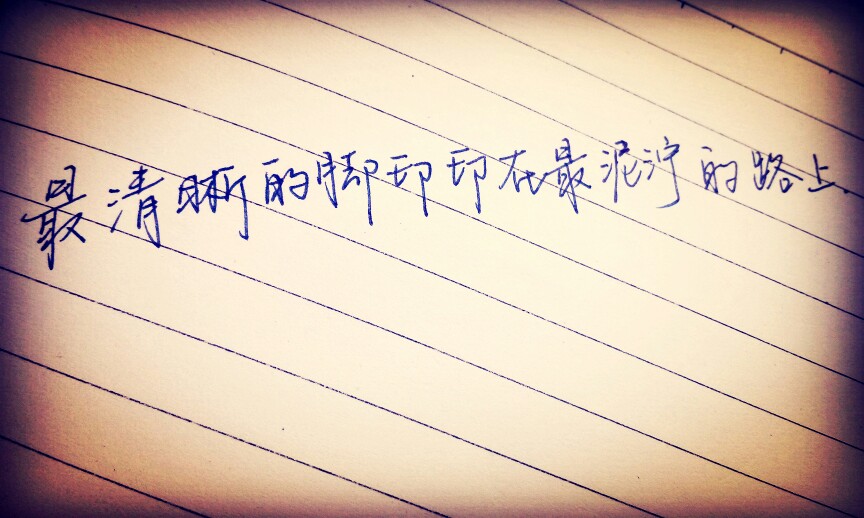 最清晰的脚印印在最泥泞的路上.